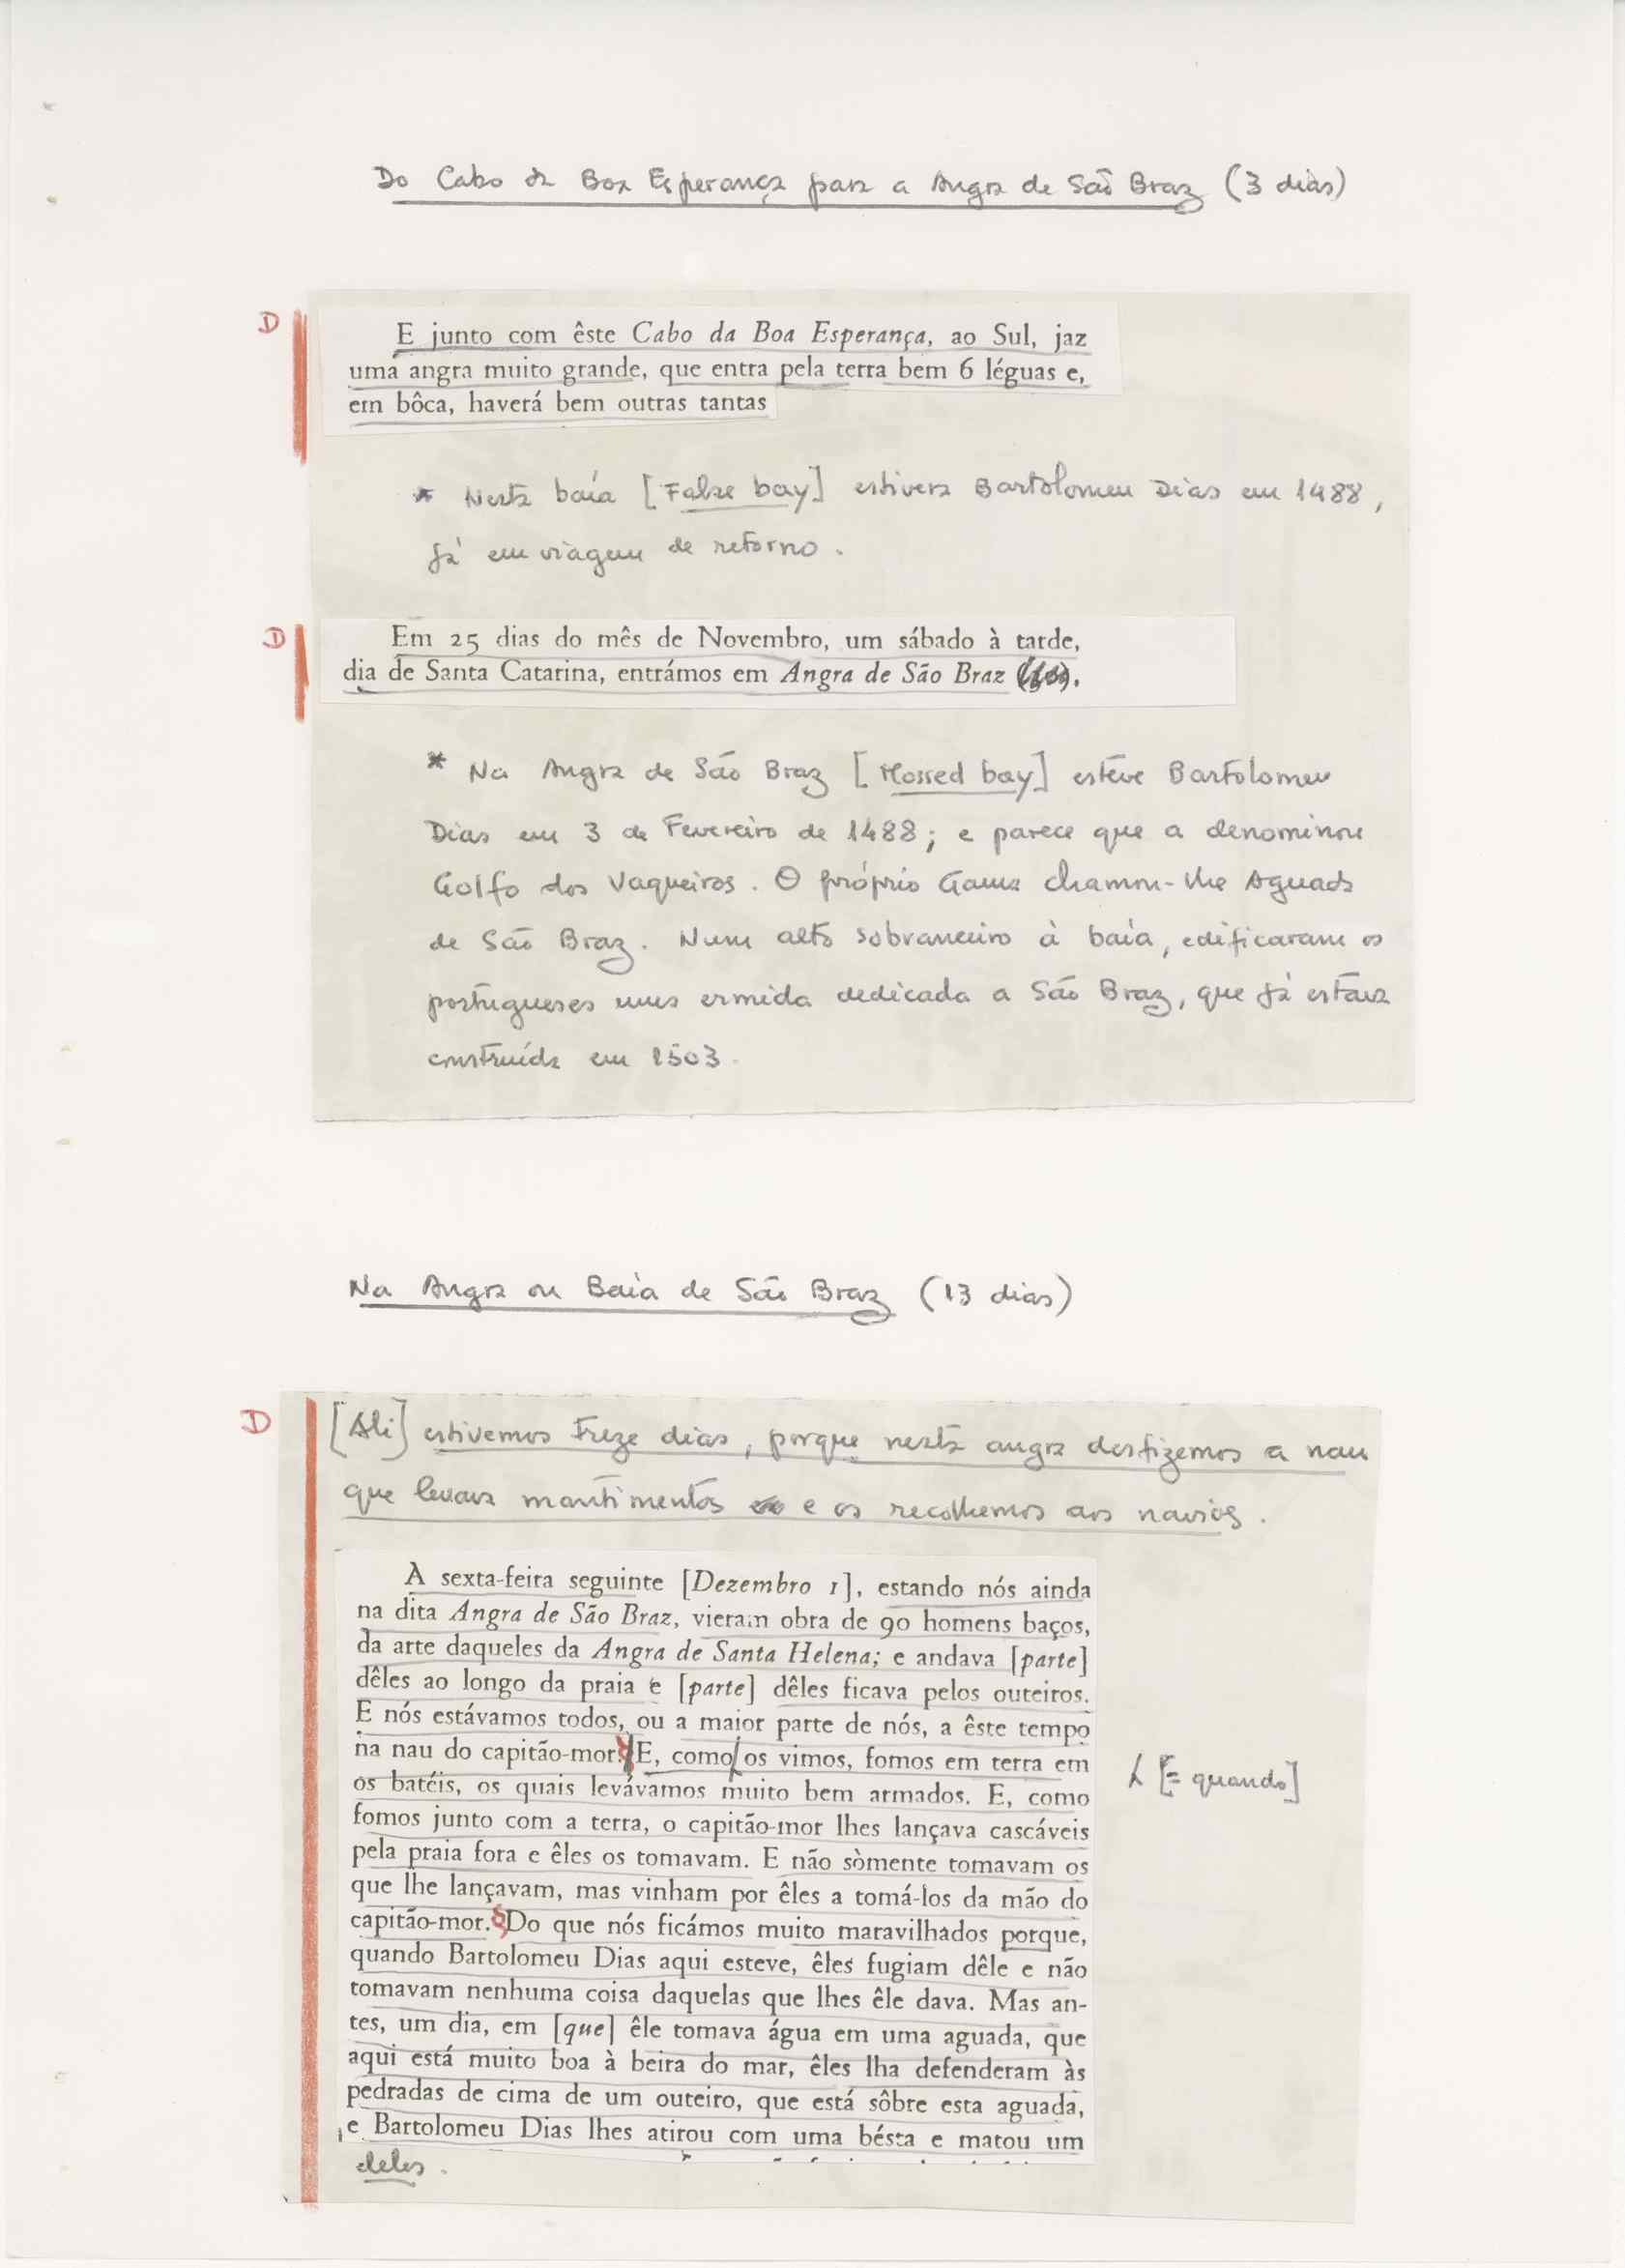 Do Cabo da Boa Esperança para a Angra de São Braz (3 dias)
D
E junto com êste Cabo da Boa Esperança, ao Sul, jaz
uma angra muito grande, que entra pela terra bem 6 léguas e,
em bôca, haverá bem outras tantas
* Nesta baía [False bay] estivera Bartolomeu Dias em 1488,
já em viagem de retorno.
D
Em 25 dias do mês de Novembro, um sábado à tarde,
dia de Santa Catarina, entrámos em Angra de São Braz
* Na Angra de São Braz [Mossed bay] estêve Bartolomeu
Dias em 3 de Fevereiro de 1488; e parece que a denominou
Golfo dos Vaqueiros. O próprio Gama chamou-lhe Aguada
de São Braz. Num alto sobranceiro à baía, edificaram os
portugueses uma ermida dedicada a São Braz, que já estava
construída em 1503.
Na Angra ou Baía de São Braz (13 dias)
D
[Ali] estivemos treze dias, porque nesta angra desfizemos a nau
que levava mantimentos e os recolhemos aos navios.
À sexta-feira seguinte [Dezembro 1], estando nós ainda
na dita Angra de São Braz, vieram obra de 90 homens baços,
da arte daqueles da Angra de Santa Helena; e andava [parte]
dêles ao longo da praia e [parte] dêles ficava pelos outeiros.
E nós estávamos todos, ou a maior parte de nós, a êste tempo
na nau do capitão-mor. E, como os vimos, fomos em terra em
[= quando]
os batéis, os quais levávamos muito bem armados. E, como
fomos junto com a terra, o capitão-mor lhes lançava cascáveis
pela praia fora e êles os tomavam. E não sòmente tomavam os
que lhe lançavam, mas vinham por êles a tomá-los da mão do
capitão-mor. Do que nós ficámos muito maravilhados porque,
quando Bartolomeu Dias aqui esteve, êles fugiam dêle e não
tomavam nenhuma coisa daquelas que lhes êle dava. Mas an-
tes, um dia, em [que] êle tomava água em uma aguada, que
aqui está muito boa à beira do mar, êles lha defenderam às
pedradas de cima de um outeiro, que está sôbre esta aguada,
e Bartolomeu Dias lhes atirou com uma bésta e matou um
deles.